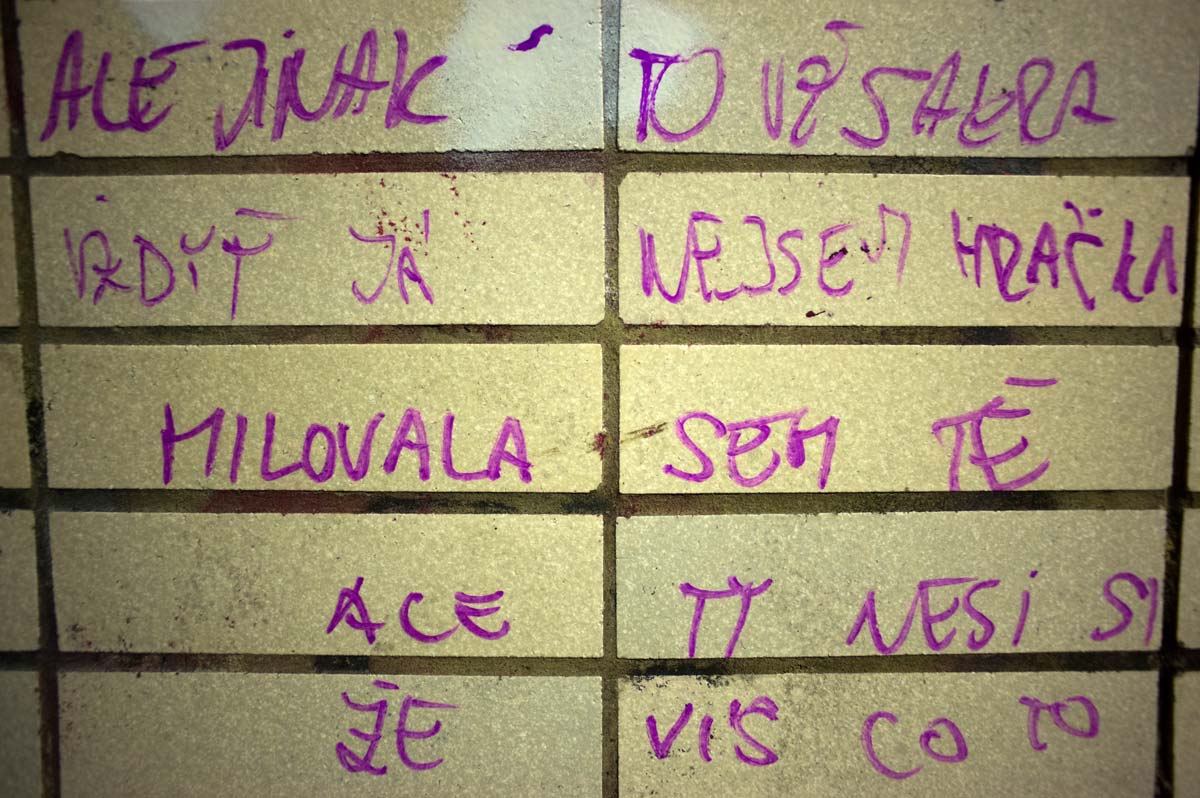 ALE JINAK TO SAKRA
VŽDYŤ JÁ NEJSEM HRAČKA
MILOVALA SEM TĚ
ALE TY NESI SI
ŽE VIS CO TO